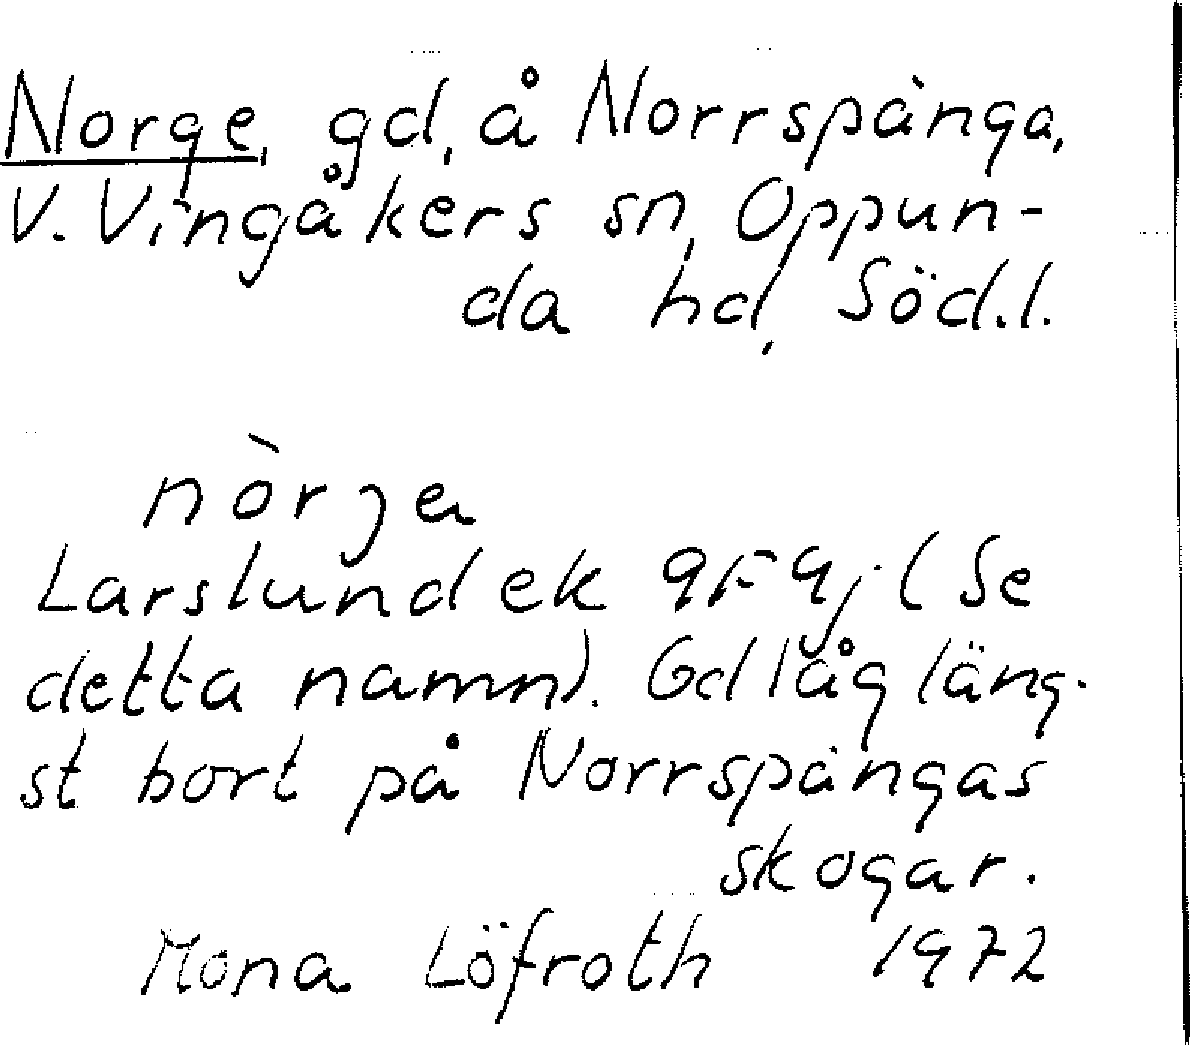 Norge, gd, å Norrspånga,
V. Vingåkers sn, Oppun-
da hd, Söd.l.
nòrje
Larslund ek 9F 9j (Se
detta namn). Gd låg läng-
st bort på Norrspångas
skogar.
Mona Löfroth 1972